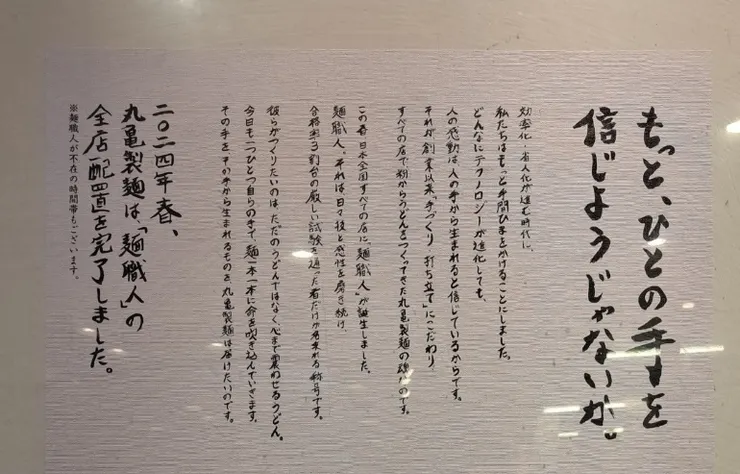 もっと、ひとの手を
信じようじゃないか。
効率化・省人化が進む時代に、
私たちはもっと手間ひまをかけることにしました。
どんなにテクノロジーが進化しても、
人の感動は、人の手から生まれると信じているからです。
それが創業以来「手づくり、打ち立て」にこだわり、
すべての店で粉からうどんをつくってきた丸亀製麺の魂なのです。
この春、日本全国すべての店に、「麺職人」が誕生しました。
麺職人、それは日々技と感性を磨き続け
合格率3割台の厳しい試験を通った者だけが名乗れる称号です。
彼らがつくりたいのは、ただのうどんではなく、心まで震わせるうどん。
今日も一つひとつ自らの手で、麺一本一本に命を吹き込んでいきます。
その手を、その手から生まれるものを、丸亀製麺は届けたいのです。
二〇二四年春、
丸亀製麺は、「麺職人」の
全店配置を完了しました。
※麺職人が不在の時間帯もございます。